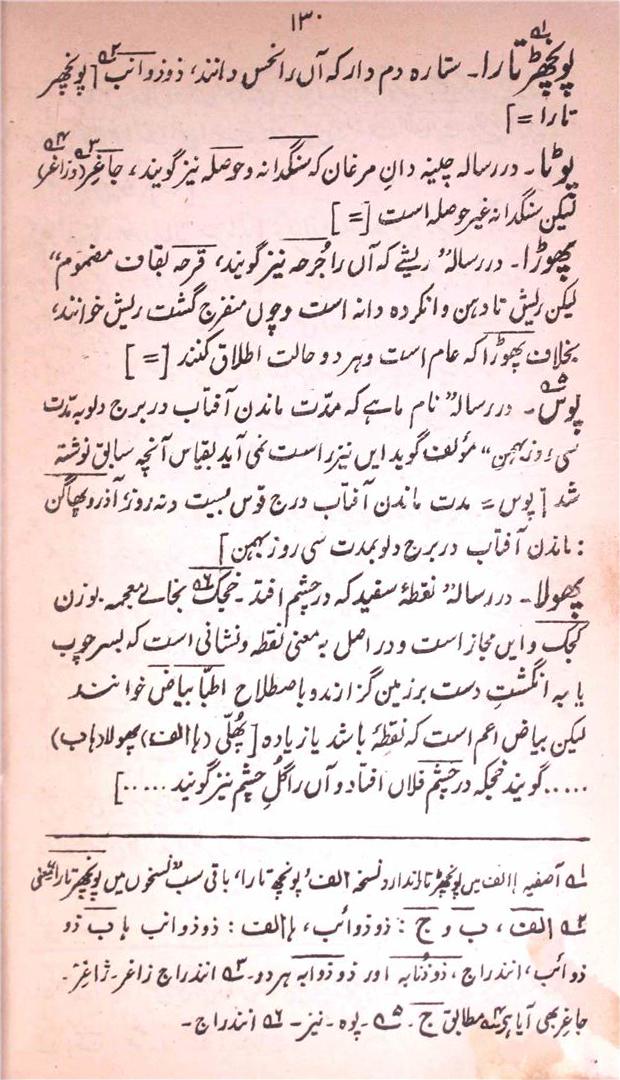 ۱۳۰
پونچھڑ تارا۔ ستارہ دم دار کہ آں را نحس دانند، ذوذوانب [پونچھر
تارا =]
پوٹا۔ در رسالہ چینہ دانِ مرغان کہ سنگدانہ و حوصلہ نیز گویند، جاغِر (وزاغر)
لیکن سنگدانہ غیر حوصلہ است [=]
پھوڑا۔ در رسالہ ”ریشے کہ آں را جُرحہ نیز گویند، قرحہ بقاف مضموم“
لیکن ریش تا دہن وا نکردہ دانہ است و چوں منفرج گشت ریش خوانند،
بخلاف پھوڑا کہ عام است و ہر دو حالت اطلاق کنند [=]
پوس۔ در رسالہ ”نام ماہے کہ مدّت ماندن آفتاب در برج دلو بہ مدّت
سی روز بہمن“ مؤلف گوید ایں نیز راست نمی آید بقیاس آنچہ سابق نوشتہ
شد [پوس = مدت ماندن آفتاب درج قوس بیست و نہ روزۂ آذر و پھاگن
: ماندن آفتاب در برج دلو بمدت سی روز بہمن]
پھولا۔ در رسالہ ”نقطۂ سفید کہ در چشم افتد۔ خجک بخائے معجمہ بوزن
کجک و ایں مجاز است و در اصل بہ معنی نقطہ و نشانی است کہ بسر چوب
یا بہ انگشتِ دست بر زمین گزارند و باصطلاح اطبّا بیاض خوانند
لیکن بیاض اعم است کہ نقطۂ باشد یا زیادہ [پُھلّی (ہا الف) پھولا (ہا ب)
..... گویند خجکہ در چشم فلاں افتاد و آں را گُلِ چشم نیز گویند .....]
۱؎ آصفیہ ہا الف میں پونچھڑ تارا ندارد نسخہ الف، پونچھ تارا، باقی سب نسخوں میں پونچھر تارا
۲؎ الف، ب و ج : ذوذوائب، ہا الف : ذوذوانب ہا ب ذو
ذوائب، انندراج، ذوذنابہ اور ذوذوابہ ہر دو۔ ۳؎ انندراج زاغر۔ ژاغِر۔
جاغِر بھی آیا ہے ۴؎ مطابق ج۔ ۵؎ پوہ۔ نیز۔ ۶؎ انندراج۔